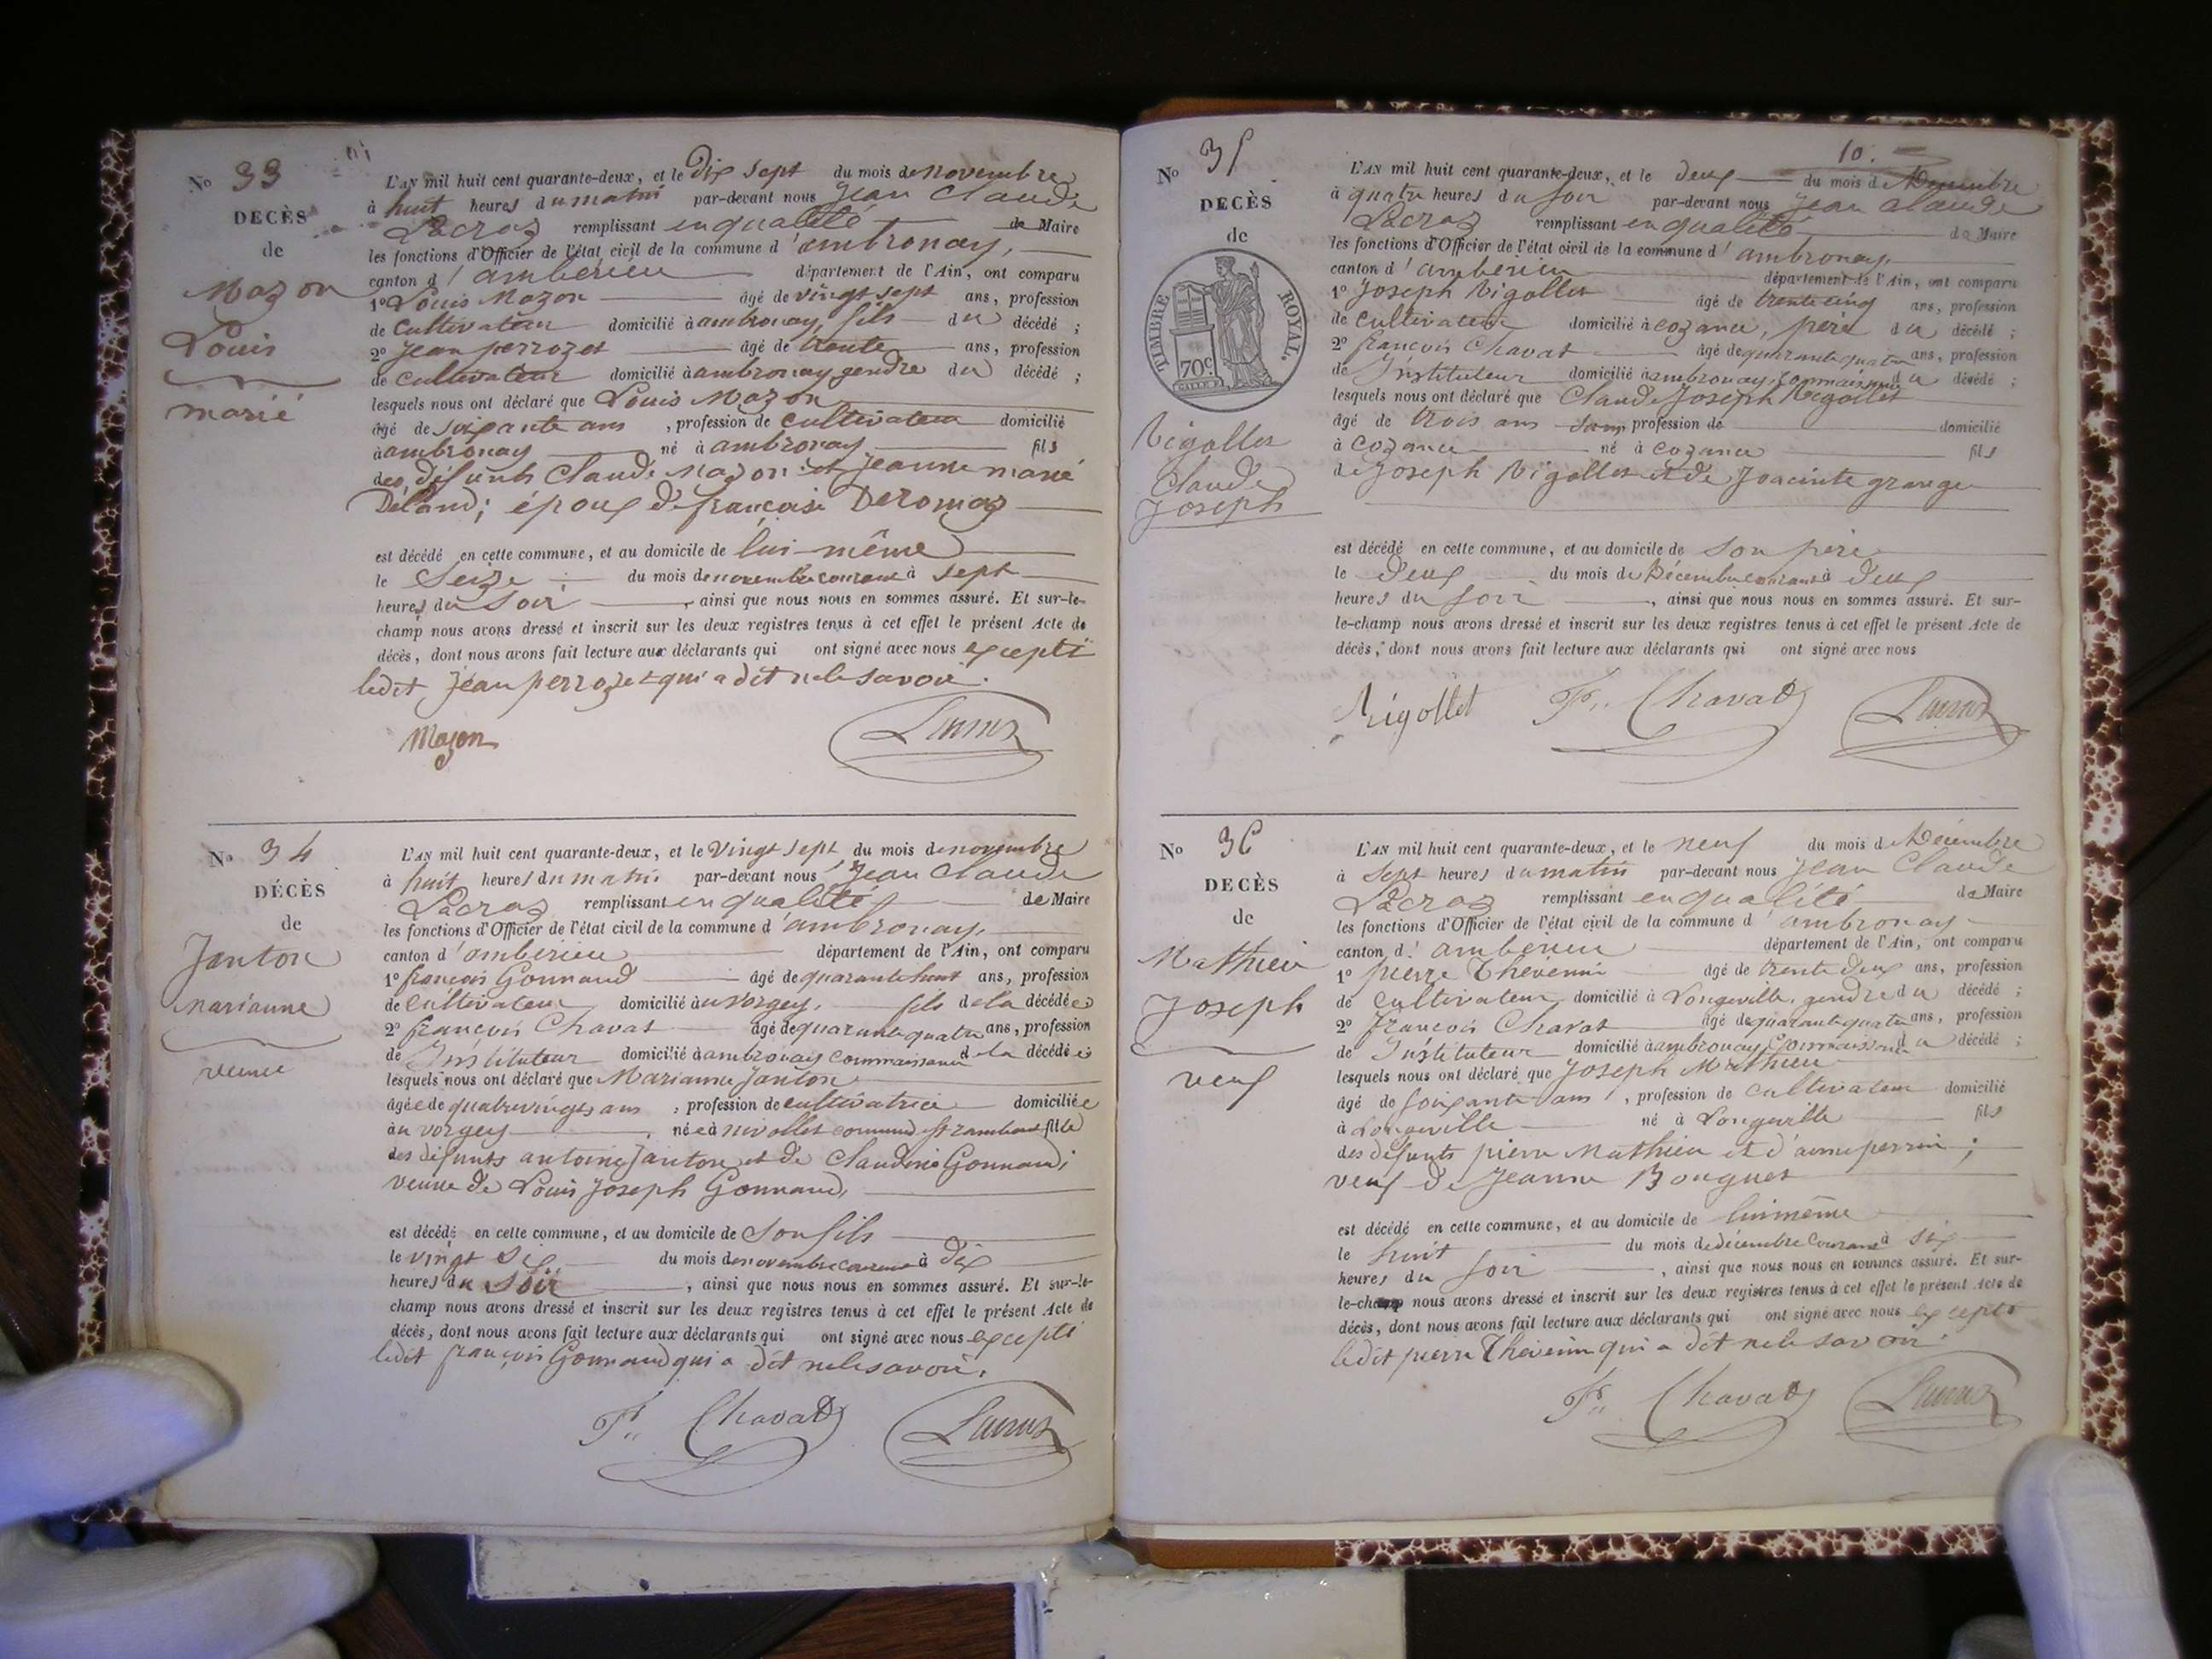 N° 33
DECÈS
de
Mazon
Louis
marié
L'AN mil huit cent quarante-deux, et le Dix sept du mois de novembre
à huit heures du matin par-devant nous Jean Claude
Lacroz remplissant en qualité de Maire
les fonctions d'Officier de l'état civil de la commune d'ambronay,
canton d'ambérieu département de l'Ain, ont comparu
1° Louis Mazon âgé de vingt sept ans, profession
de Cultivateur domicilié à ambronay, fils du décédé ;
2° Jean perrozet âgé de trente ans, profession
de Cultivateur domicilié à ambronay gendre du décédé ;
lesquels nous ont déclaré que Louis Mazon
âgé de soixante ans , profession de cultivateur domicilié
à ambronay né à ambronay fils
des défunts Claude Mazon et Jeanne marie
Déland; époux de françoise Deromaz
est décédé en cette commune, et au domicile de lui-même
le Seize du mois de novembre courant à sept
heures du soir , ainsi que nous nous en sommes assuré. Et sur-le-
champ nous avons dressé et inscrit sur les deux registres tenus à cet effet le présent Acte de
décès, dont nous avons fait lecture aux déclarants qui ont signé avec nous excepté
ledit Jean perrozet qui a dit ne le savoir.
Mazon
N° 34
DÉCÈS
de
Janton
Marianne
veuve
L'AN mil huit cent quarante-deux, et le Vingt sept du mois de novembre
à huit heures du matin par-devant nous Jean Claude
Lacroz remplissant en qualité de Maire
les fonctions d'Officier de l'état civil de la commune d'ambronay,
canton d'ambérieu département de l'Ain, ont comparu
1° françois Gonnand âgé de quarante huit ans, profession
de cultivateur domicilié au vorgey, fils de la décédée
2° françois Chavat âgé de quarante quatre ans, profession
de Instituteur domicilié à ambronay connaissance de la décédée
lesquels nous ont déclaré que Marianne Janton
âgée de quatre vingts ans , profession de cultivatrice domiciliée
au vorgey , née à nivollet commune St rambert fille
des défunts antoine Janton et de Claudine Gonnand;
veuve de Louis Joseph Gonnand,
est décédé en cette commune, et au domicile de son fils
le vingt six du mois de novembre courant à dix
heures du soir , ainsi que nous nous en sommes assuré. Et sur-le-
champ nous avons dressé et inscrit sur les deux registres tenus à cet effet le présent Acte de
décès, dont nous avons fait lecture aux déclarants qui ont signé avec nous excepté
ledit françois Gonnand qui a dit ne le savoir.
Fs Chavat
10.
N° 35
DECÈS
de
TIMBRE ROYAL.
70c.
Rigollet
Claude
Joseph
L'AN mil huit cent quarante-deux, et le deux du mois de Décembre
à quatre heures du soir par-devant nous Jean Claude
Lacroz remplissant en qualité de Maire
les fonctions d'Officier de l'état civil de la commune d'ambronay,
canton d'ambérieu département de l'Ain, ont comparu
1° Joseph Rigollet âgé de trente cinq ans, profession
de cultivateur domicilié à cozance, père du décédé ;
2° françois Chavat âgé de quarante quatre ans, profession
de Instituteur domicilié à ambronay, connaissance du décédé ;
lesquels nous ont déclaré que Claude Joseph Rigollet
âgé de trois ans sans profession de domicilié
à cozance né à cozance fils
de Joseph Rigollet et de Joacinte grange
est décédé en cette commune, et au domicile de son père
le deux du mois de Décembre courant à deux
heures du soir , ainsi que nous nous en sommes assuré. Et sur-
le-champ nous avons dressé et inscrit sur les deux registres tenus à cet effet le présent Acte de
décès, dont nous avons fait lecture aux déclarants qui ont signé avec nous
Rigollet Fs Chavat
N° 36
DECÈS
de
Mathieu
Joseph
veuf
L'AN mil huit cent quarante-deux, et le neuf du mois de Décembre
à sept heures du matin par-devant nous Jean Claude
Lacroz remplissant en qualité de Maire
les fonctions d'Officier de l'état civil de la commune d'ambronay
canton d'ambérieu département de l'Ain, ont comparu
1° pierre Thévenin âgé de trente deux ans, profession
de cultivateur domicilié à Longeville, gendre du décédé ;
2° françois Chavat âgé de quarante quatre ans, profession
de Instituteur domicilié à ambronay, connaissance du décédé ;
lesquels nous ont déclaré que Joseph Mathieu
âgé de soixante ans , profession de cultivateur domicilié
à Longeville né à Longeville fils
des défunts pierre Mathieu et d'anne perrin ;
veuf de Jeanne Bouguet
est décédé en cette commune, et au domicile de lui même
le huit du mois de décembre courant à six
heures du soir , ainsi que nous nous en sommes assuré. Et sur-
le-champ nous avons dressé et inscrit sur les deux registres tenus à cet effet le présent Acte de
décès, dont nous avons fait lecture aux déclarants qui ont signé avec nous excepté
ledit pierre Thévenin qui a dit ne le savoir.
Fs Chavat